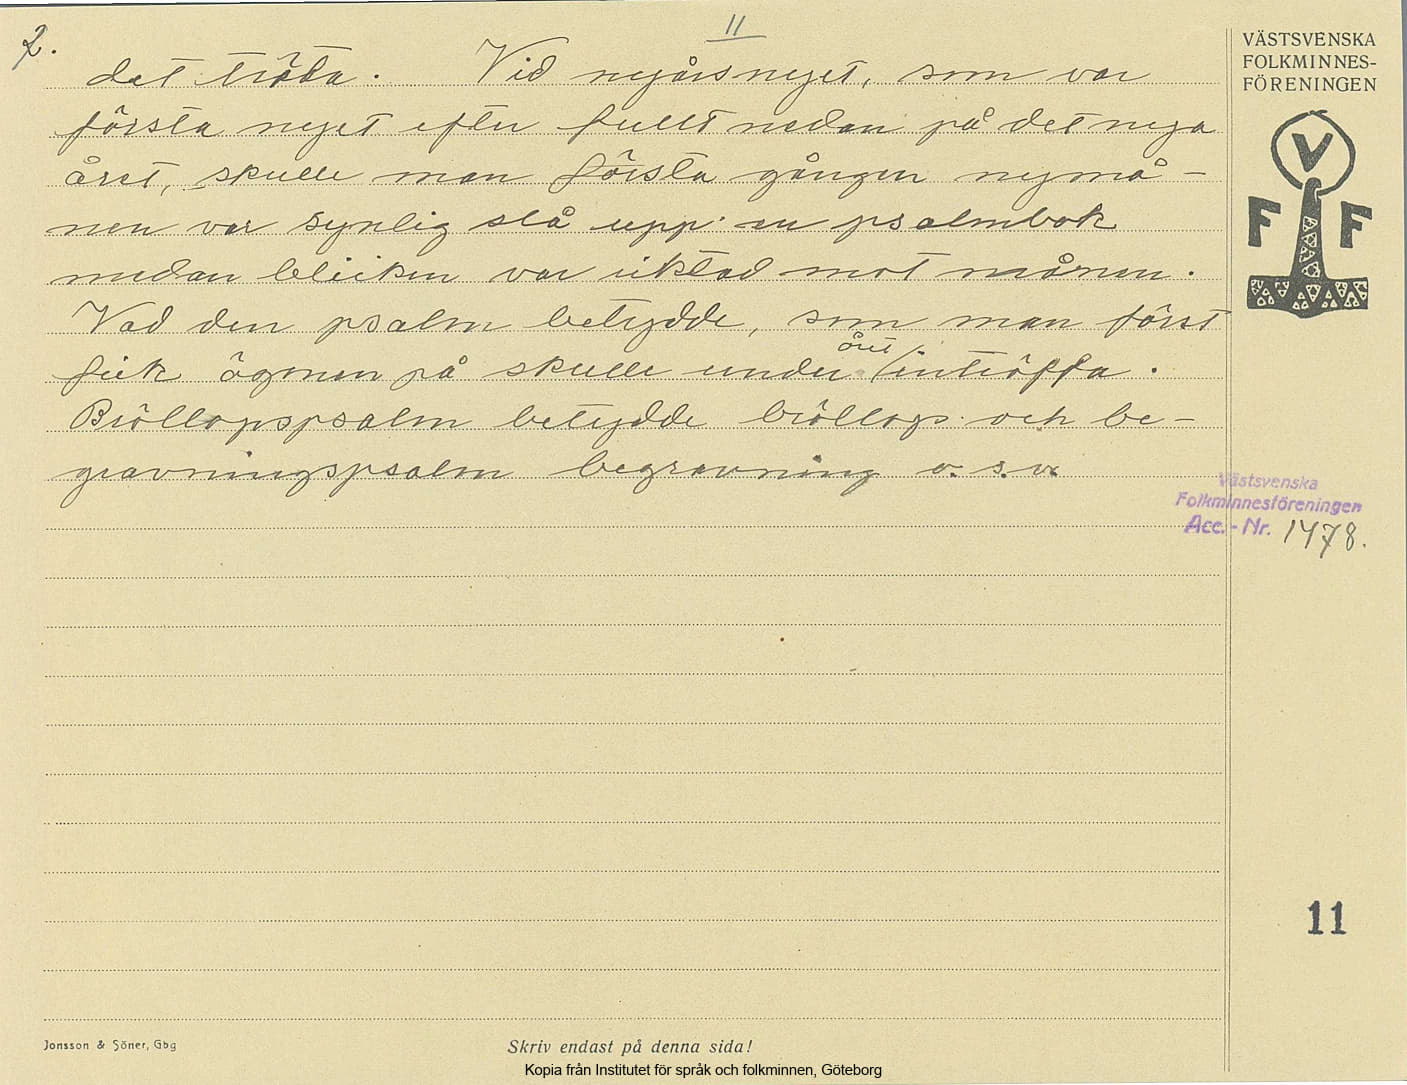 2.
11
det tröta. Vid nyårsnyet, som var
första nyet efter fullt nedan på det nya
året, skulle man första gången nymå-
nen var synlig slå upp en psalmbok
medan blicken var riktad mot månen.
Vad den psalm betydde, som man först
fick ögonen på skulle under året intröffa.
Bröllopspsalm betydde bröllop och be-
gravningspsalm begravning o.s.v.
VÄSTSVENSKA
FOLKMINNES-
FÖRENINGEN
V
F F
Västsvenska
Folkminnesföreningen
Acc.-Nr. 1478.
11
Jonsson & Söner, Gbg
Skriv endast på denna sida!
Kopia från Institutet för språk och folkminnen, Göteborg